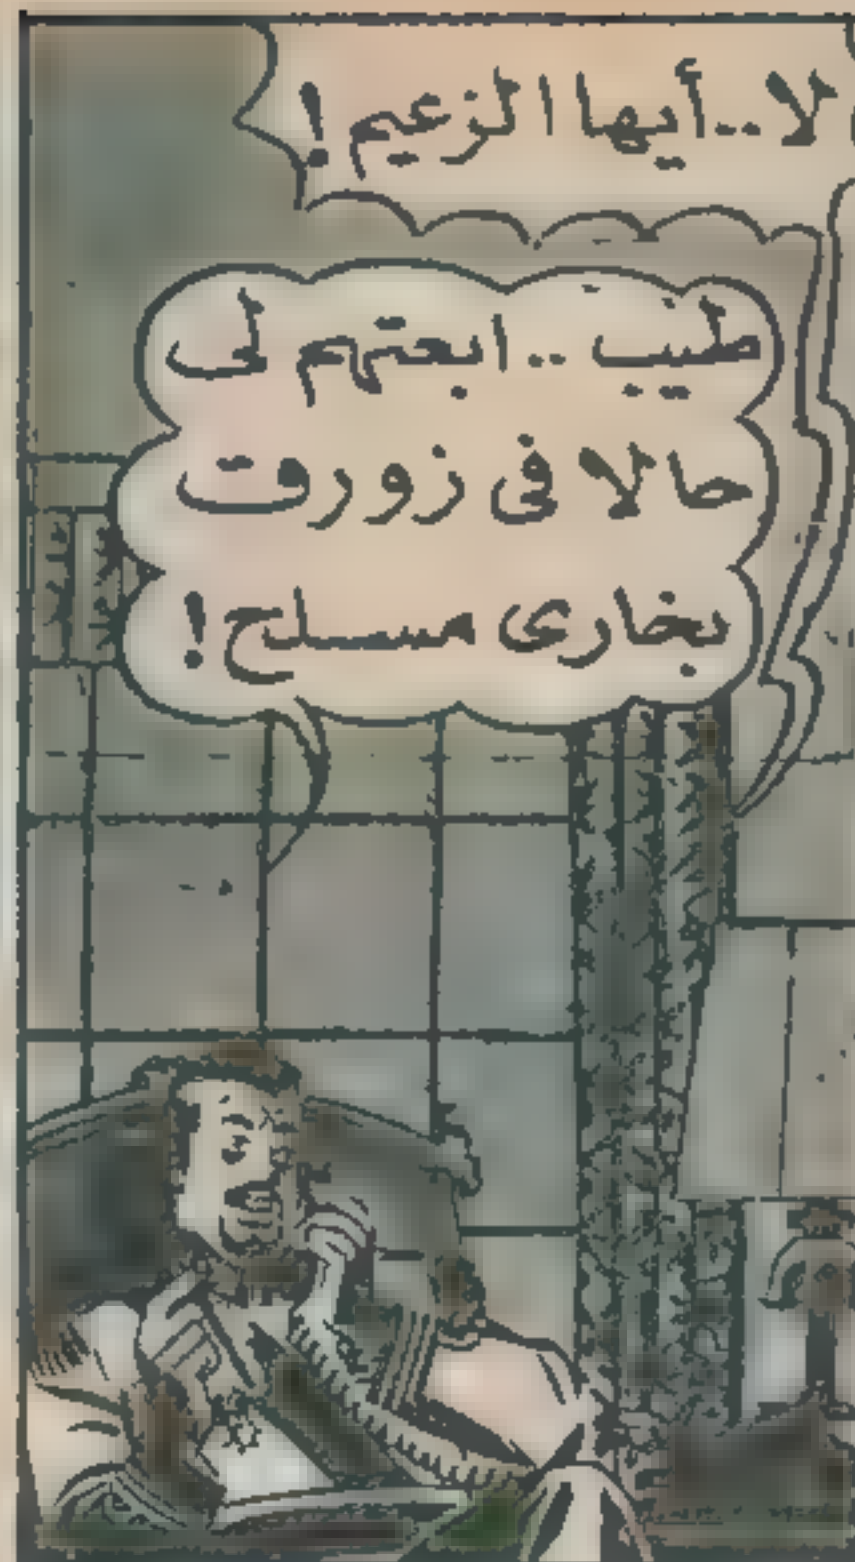 لا..أيها الزعيم!
طيب .. ابعتهم لى
حالا فى زورق
بخارى مسلح!